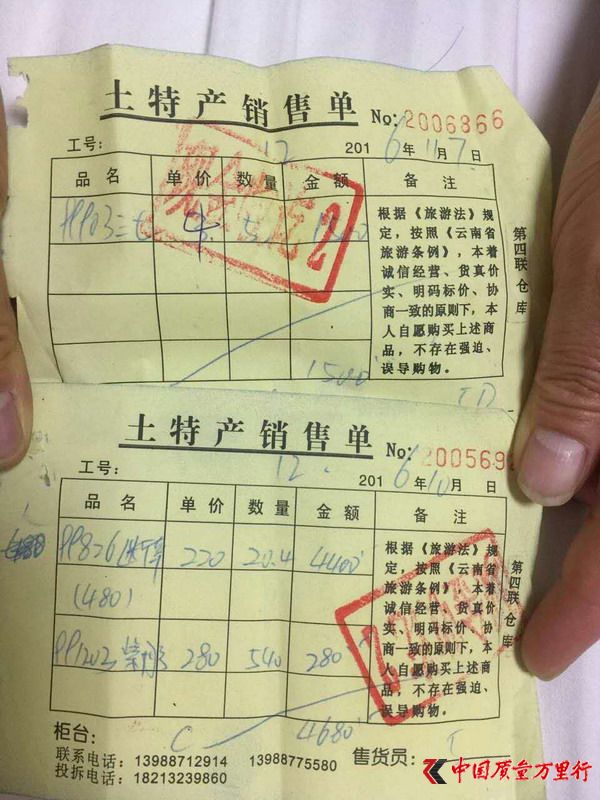 土特产销售单 No: 2006366
工号: 12 2016年11月7日
品名 单价 数量 金额 备注
根据《旅游法》规
定，按照《云南省
旅游条例》，本着
诚信经营、货真价
实、明码标价、协
商一致的原则下，本
人自愿购买上述商
品，不存在强迫、
误导购物。
第四联仓库
1500
土特产销售单 No: 200569
工号: 12 2016年10月 日
品名 单价 数量 金额 备注
220 20.4 4400
(480)
PP1202 280 540 280
4680
根据《旅游法》规
定，按照《云南省
旅游条例》 本着
诚信经营、货真价
实、明码标价、协
商一致的原则下，本
人自愿购买上述商
品，不存在强迫、
误导购物。
第四联仓库
柜台: C 售货员: T
联系电话: 13988712914 13988775580
投拆电话: 18213239860
中国质量万里行